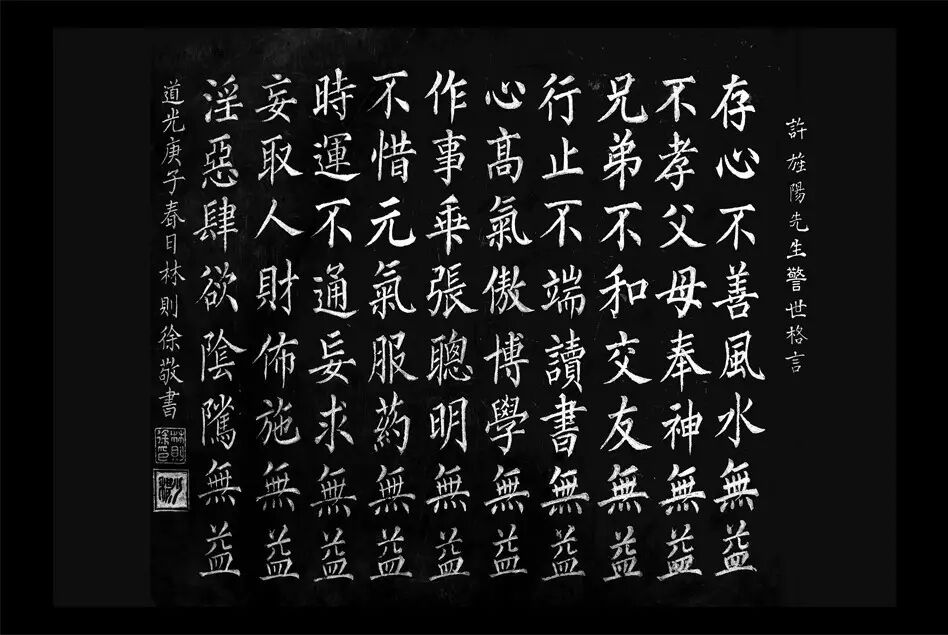 許旌陽先生警世格言
存心不善風水無益
不孝父母奉神無益
兄弟不和交友無益
行止不端讀書無益
心高氣傲博學無益
作事乖張聰明無益
不惜元氣服药無益
時運不通妄求無益
妄取人財佈施無益
淫惡肆欲陰騭無益
道光庚子春日林則徐敬書
林則徐印